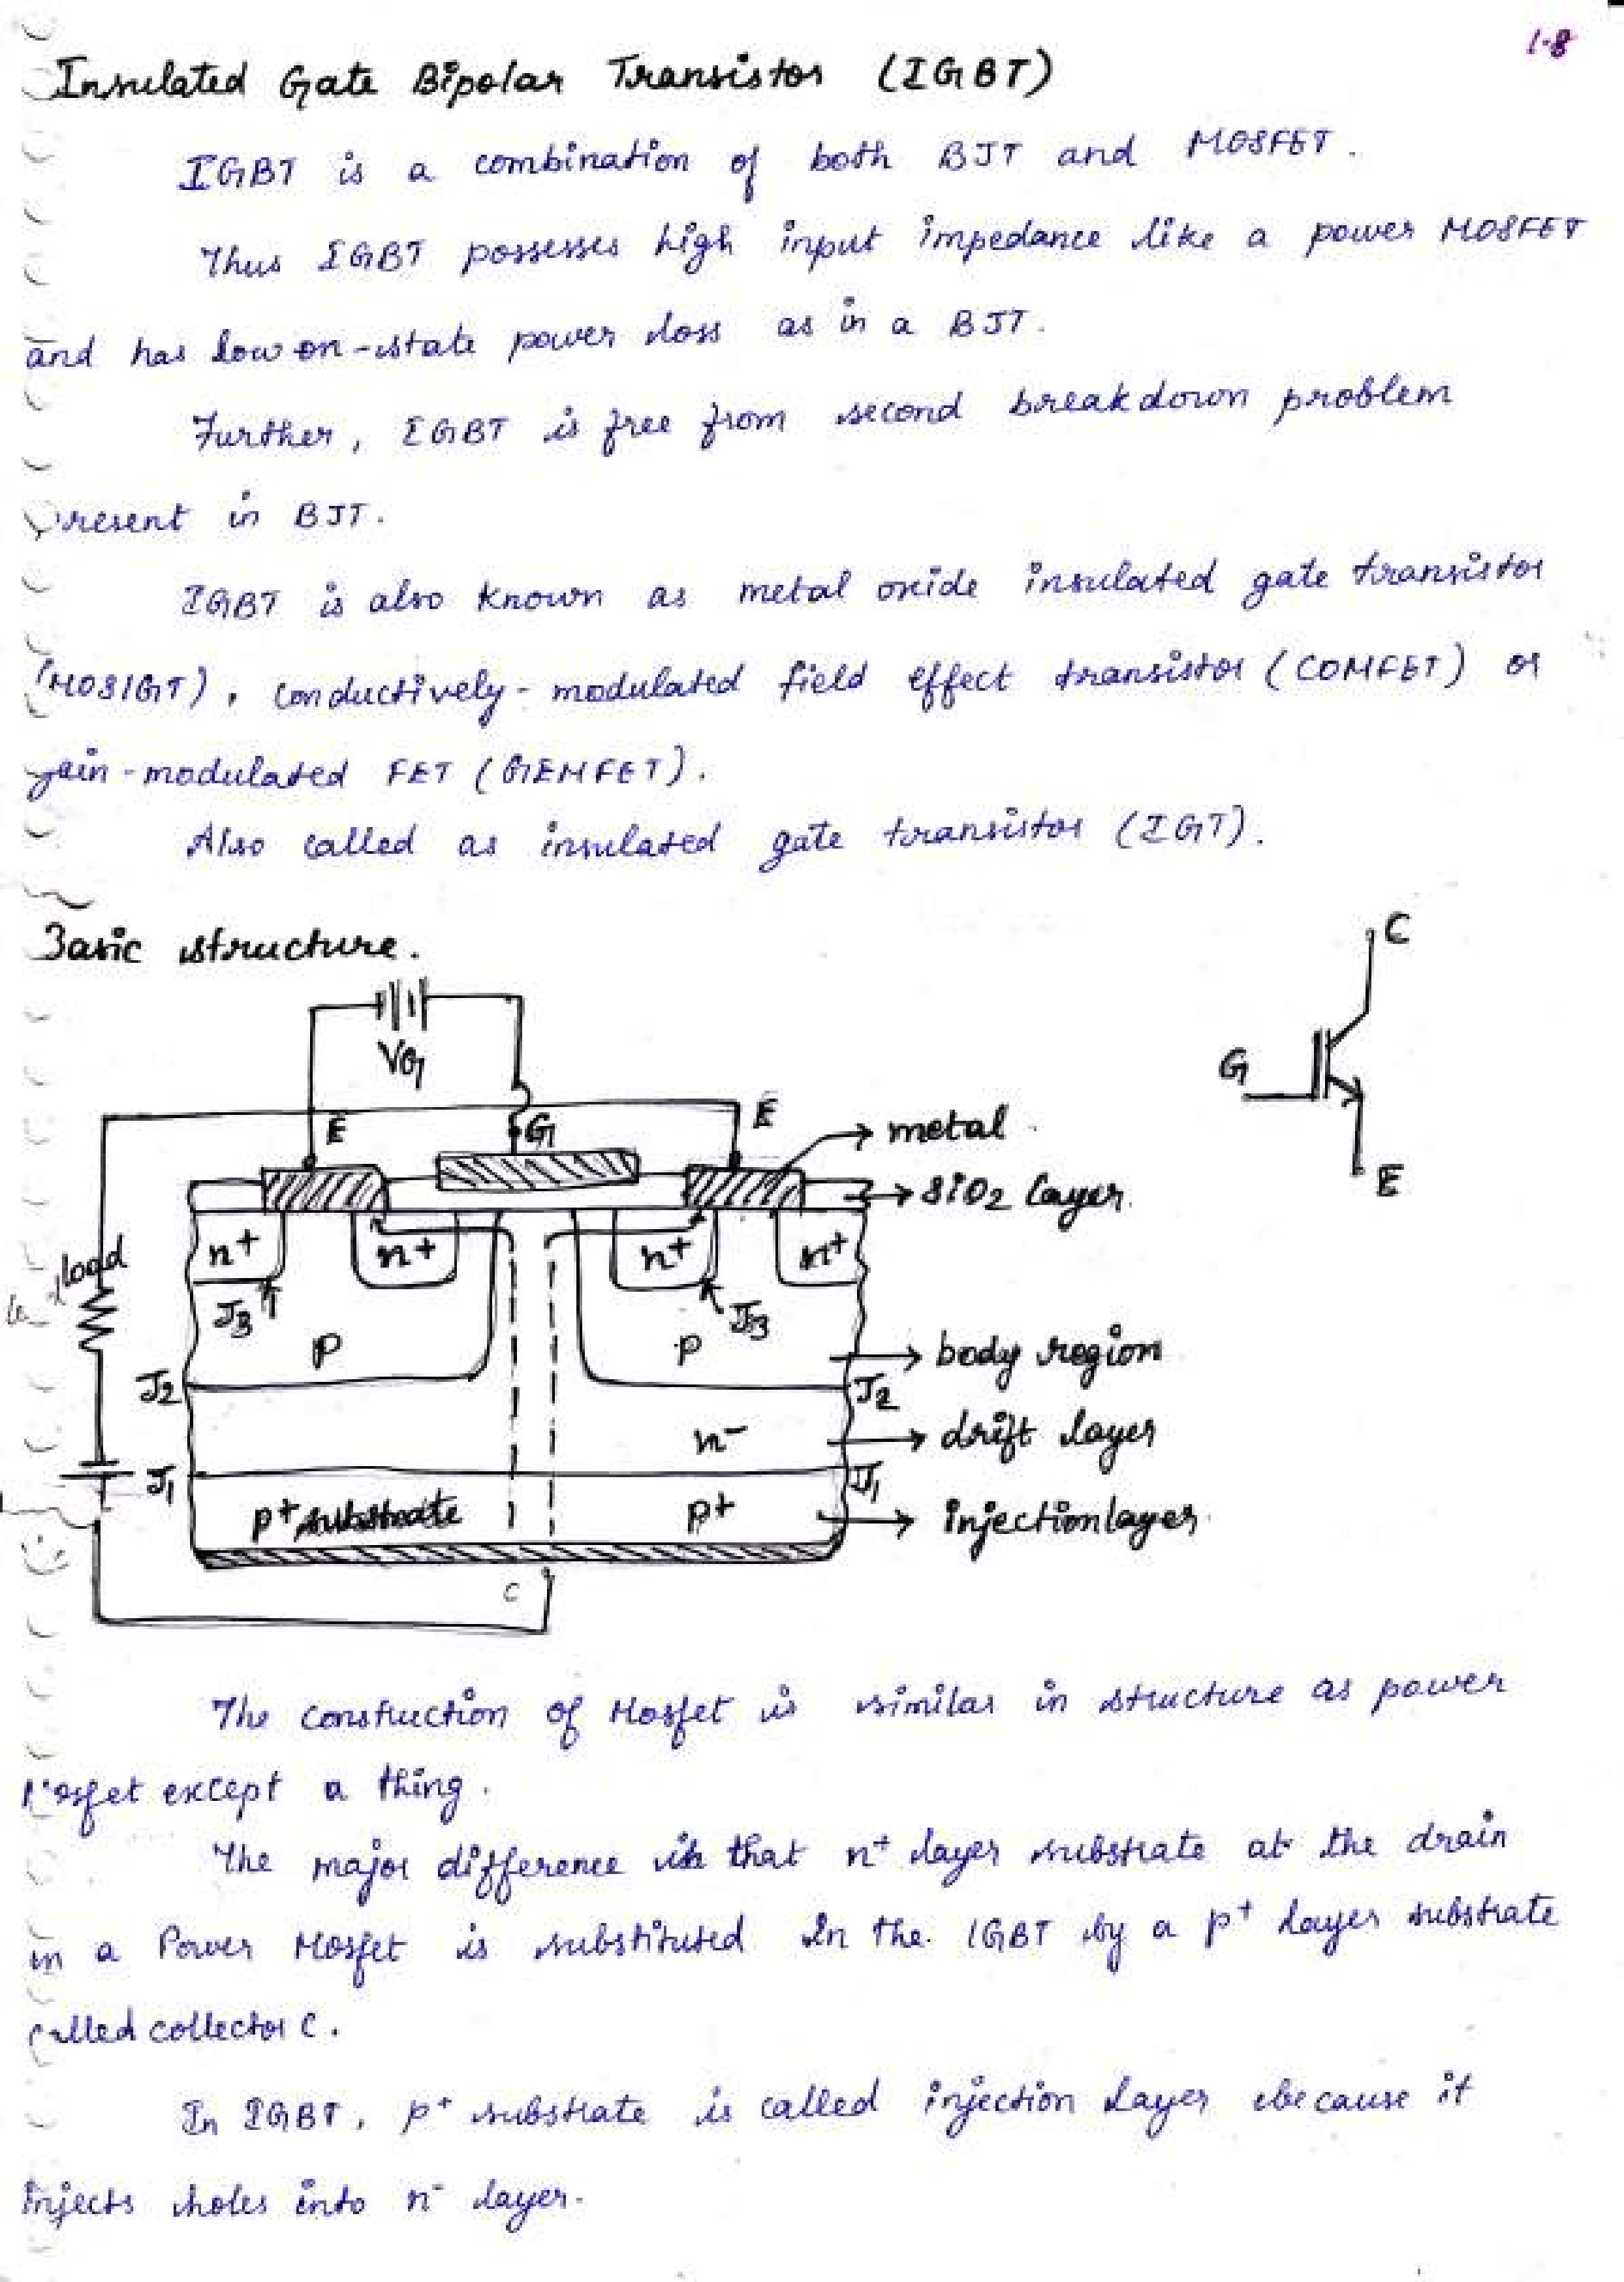 1-8
Insulated Gate Bipolar Transistor (IGBT)
IGBT is a combination of both BJT and MOSFET.
Thus IGBT possesses high input impedance like a power MOSFET
and has low on-state power loss as in a BJT.
Further, IGBT is free from second breakdown problem
present in BJT.
IGBT is also known as metal oxide insulated gate transistor
(MOSIGT), conductively-modulated field effect transistor (COMFET) or
gain-modulated FET (GEMFET).
Also called as insulated gate transistor (IGT).
Basic structure.
C
G
E
VG
E
G
E
metal
SiO2 layer
load
n+
n+
n+
n+
J3
J3
P
P
body region
J2
J2
n-
drift layer
J1
J1
p+ substrate
p+
injection layer
C
The constuction of Mosfet is similar in structure as power
Mosfet except a thing.
The major difference is that n+ layer substrate at the drain
in a Power Mosfet is substituted in the IGBT by a p+ layer substrate
called collector C.
In IGBT, p+ substrate is called injection layer because it
injects holes into n- layer.